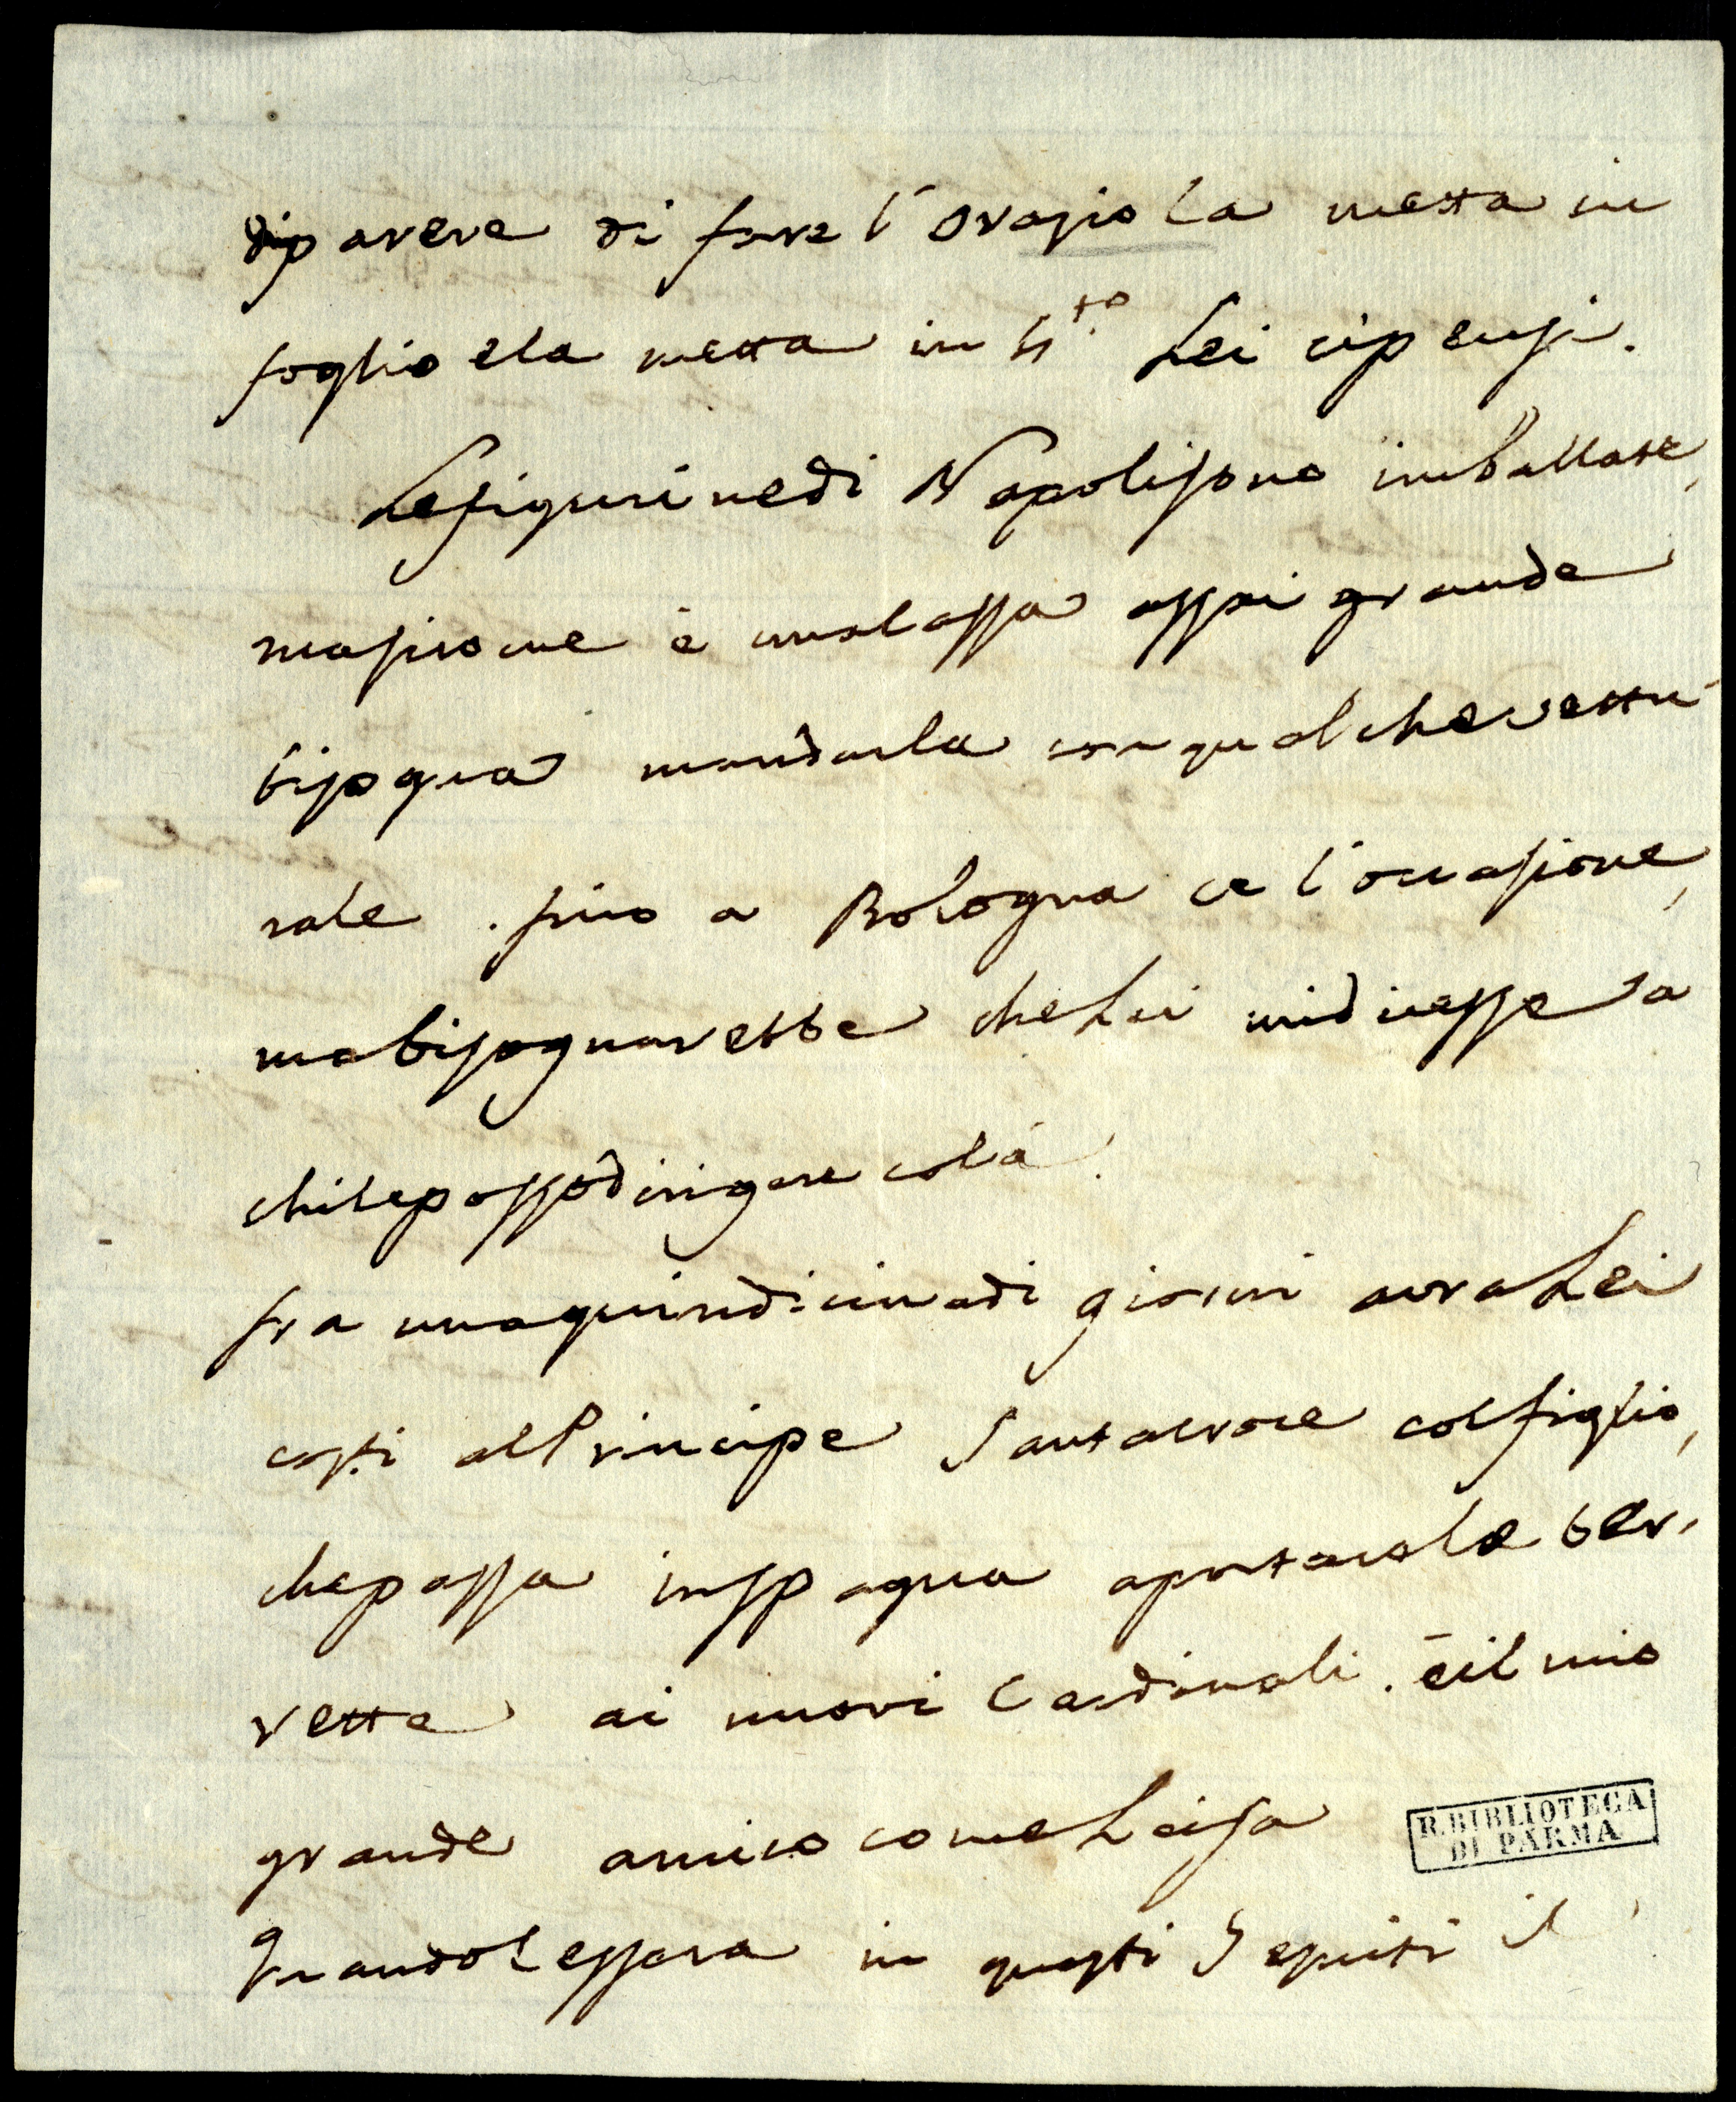 di parere di fare l'Orazio la metta in
foglio e la metta in 4.to Lei ci pensi.
Le figurine di Napoli sono imballate,
ma sicome è una cassa assai grande
bisogna mandarla con qualche vettu-
rale. fino a Bologna ce l'occasione,
ma bisognarebbe che Lei mi dicesse a
chi le posso dirigere colà.
fra una quindicina di giorni avra Lei
costi il Principe Santacroce col figlio,
che passa in Spagna a portar le ber,
rette ai nuovi Cardinali. è il mio
grande amico come Lei sa
Quando Lei in questi il
R. BIBLIOTECA
DI PARMA